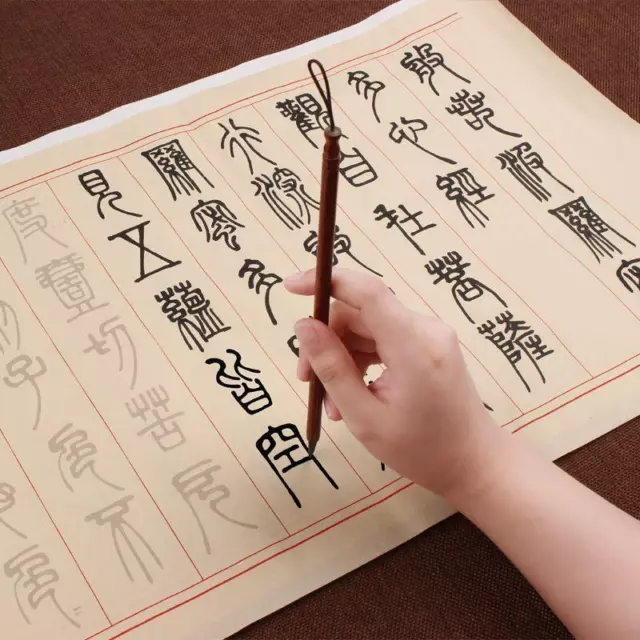 般若波羅蜜
多心經
觀自在菩薩
行深般
羅蜜多
見五蘊皆空
度壹切苦厄
利子色不